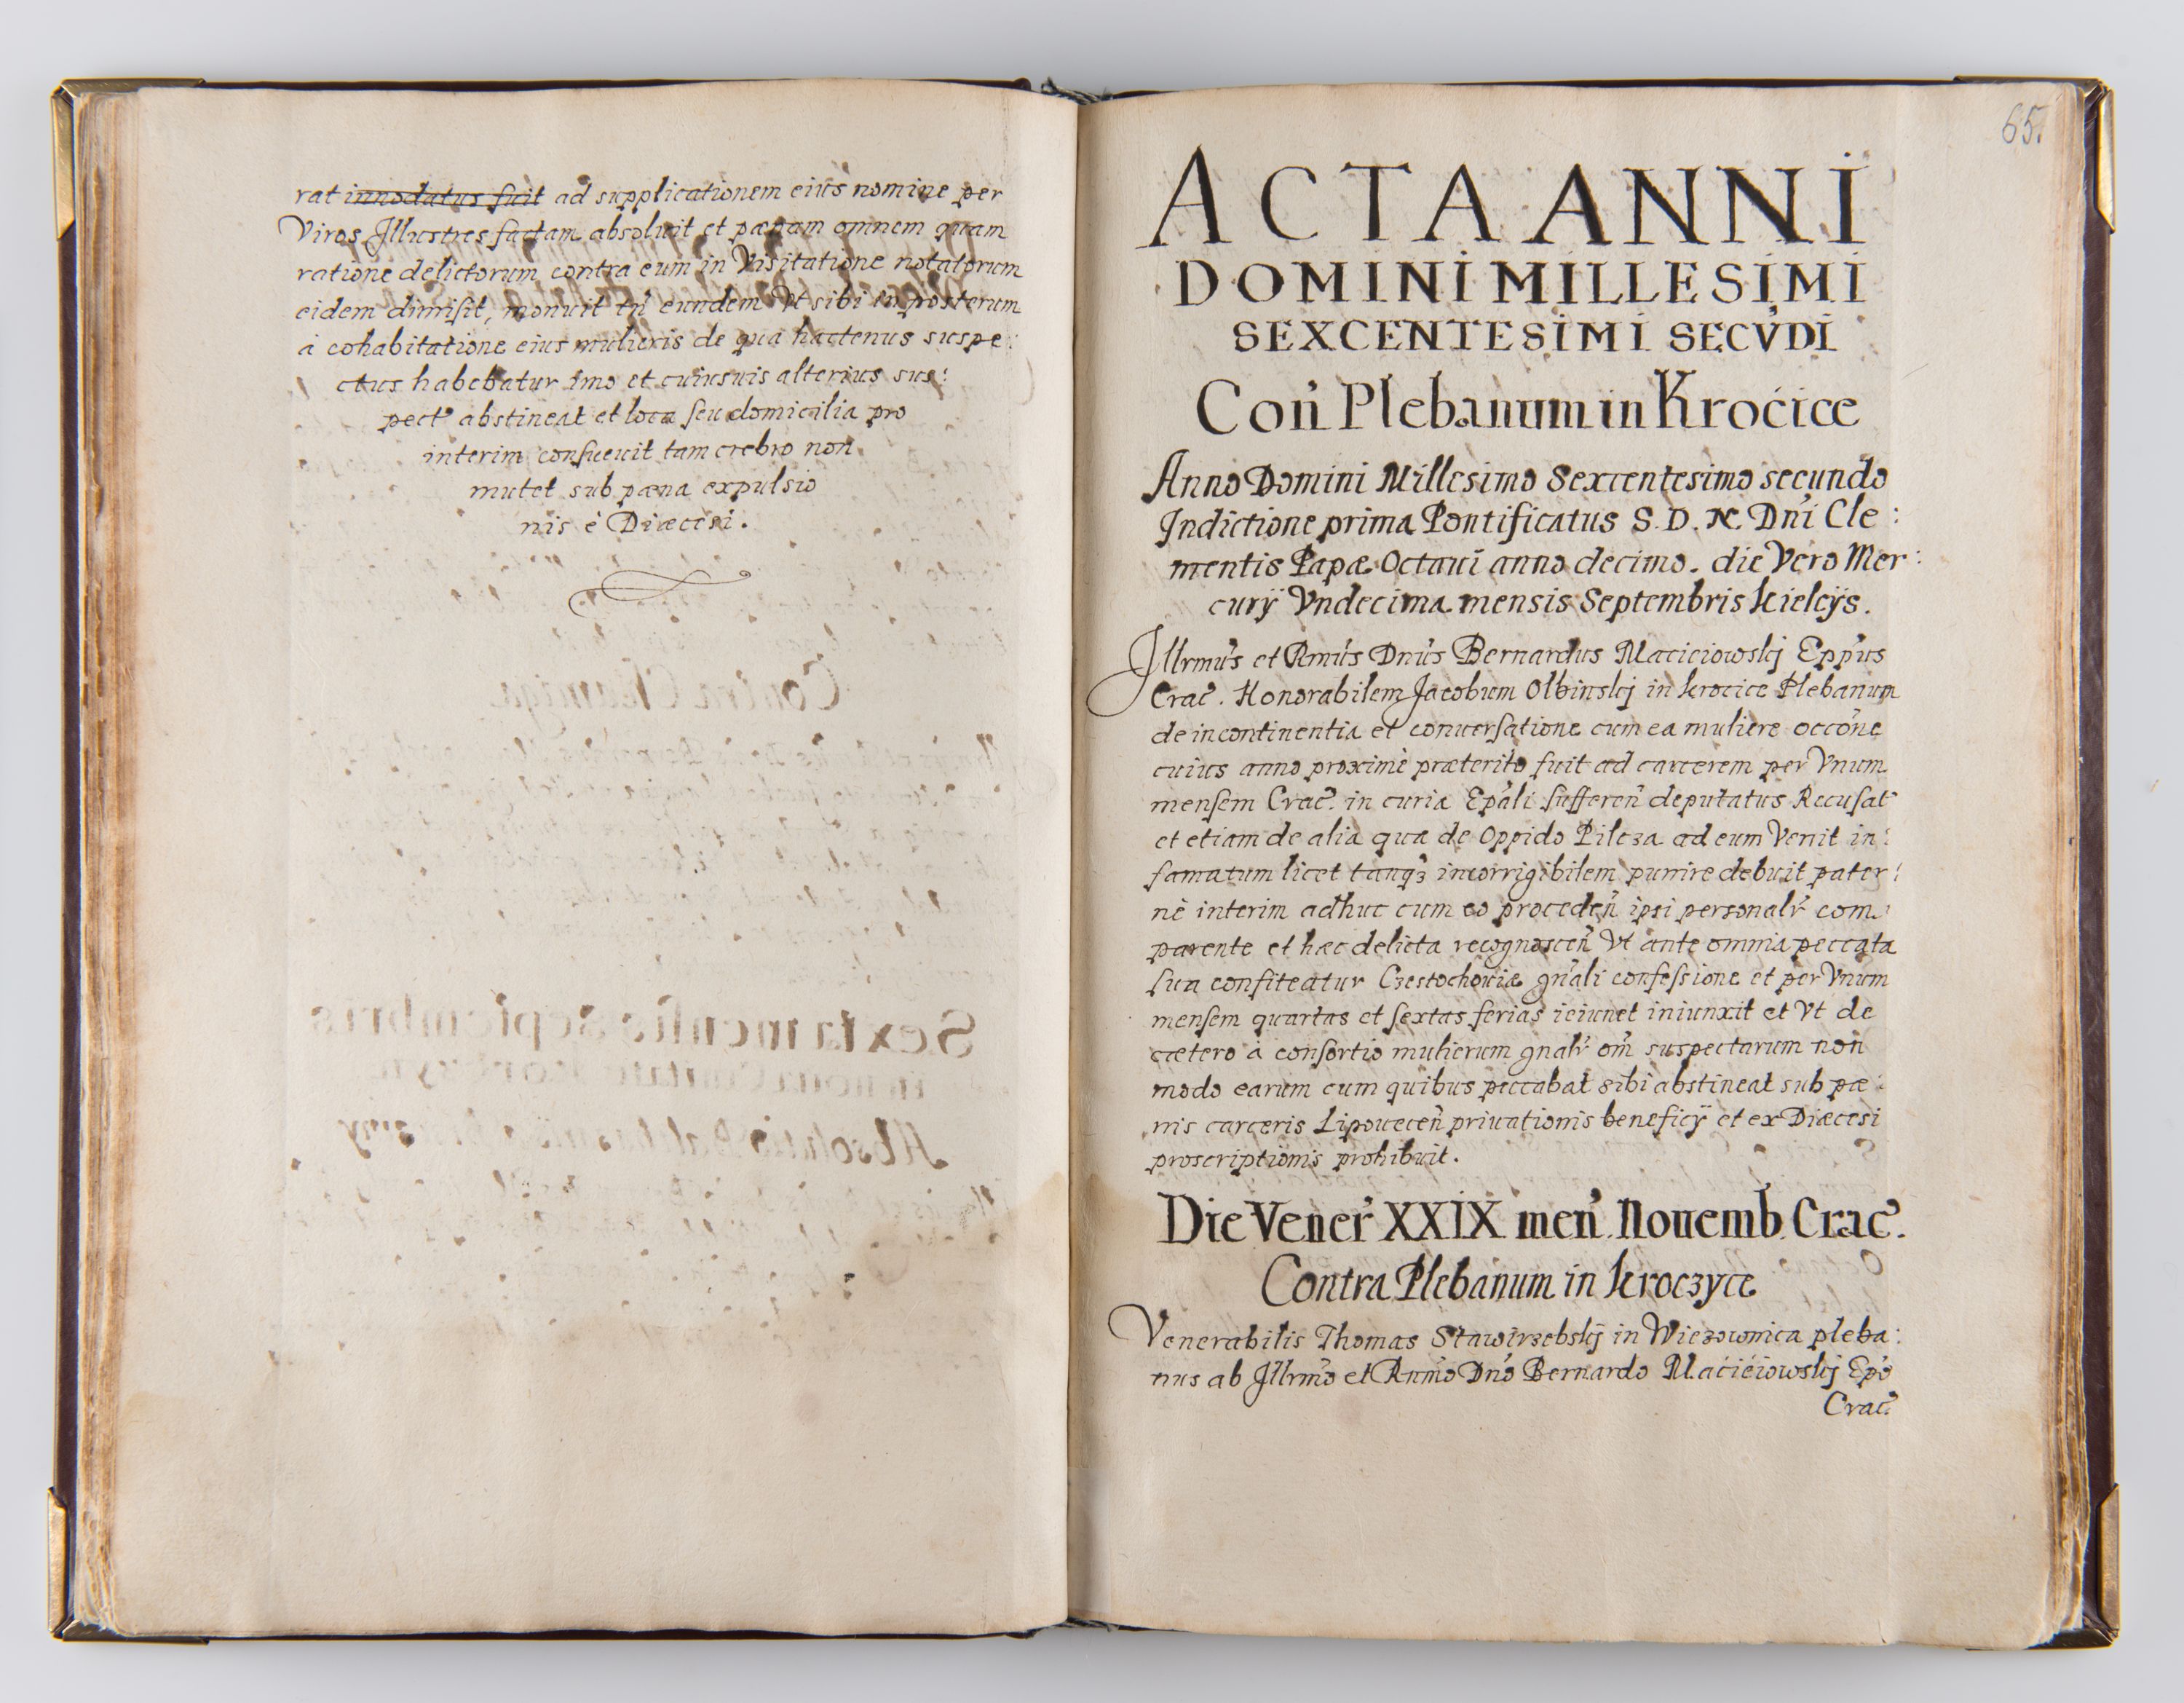 rat innodatus fuit ad supplicationem eius nomine per
Viros Illustres factam absoluit et pœnam omnem quam
ratione delictorum contra eum in Visitatione notatorum
eidem dimisit, monuit tñ eundem Vt sibi in posterum
à cohabitatione eius mulieris de qua hactenus suspe:
ctus habebatur imo et cuiusuis alterius sus:
pect' abstineat et loca seu domicilia pro
interim consueuit tam crebro non
mutet sub pœna expulsio
nis è Diœcesi.
65.
ACTA ANNI
DOMINI MILLESIMI
SEXCENTESIMI SECVDI
Coñ Plebanum in Kroćice
Anno Domini Millesimo Sexcentesimo secundo
Indictione prima Pontificatus S. D. N. Dñi Cle:
mentis Papæ Octaui anno decimo. die Vero Mer:
curÿ Vndecima mensis Septembris Kielcÿs.
Illrmus et Rmus Dnus Bernardus Macieiowskj Eppus
Crac. Honorabilem Jacobum Olbinskj in Krocice Plebanum
de incontinentia et conuersatione cum ea muliere occõne
cuius anno proximè præterito fuit ad carcerem per Vnum
mensem Crac. in curia Epali sufferen̄ deputatus Recusat
et etiam de alia quæ de Oppido Pilcza ad eum Venit in:
famatum licet tanqȝ incorrigibilem punire debuit pater:
nè interim adhuc cum eo proceden̄ ipsi personalr̄ com
parente et hæc delicta recognoscen̄ Vt ante omnia peccata
sua confiteatur Czestochouiæ gnali confessione et per Vnum
mensem quartas et sextas ferias ieiunet iniunxit et Vt de
cætero à consortio mulierum gnalr̄ om̄ suspectarum non
modo earum cum quibus peccabat sibi abstineat sub pœ:
nis carceris Lipouecen̄ priuationis beneficÿ et ex Diœcesi
proscriptionis prohibuit.
Die Vener̄ XXIX men̄. Nouemb. Crac.
Contra Plebanum in Kroczyce
Venerabilis Thomas Stawirzebskj in Wiezownica pleba:
nus ab Illrmo et Rmmo Dno Bernardo Maciéiowskj Epo
Crac.